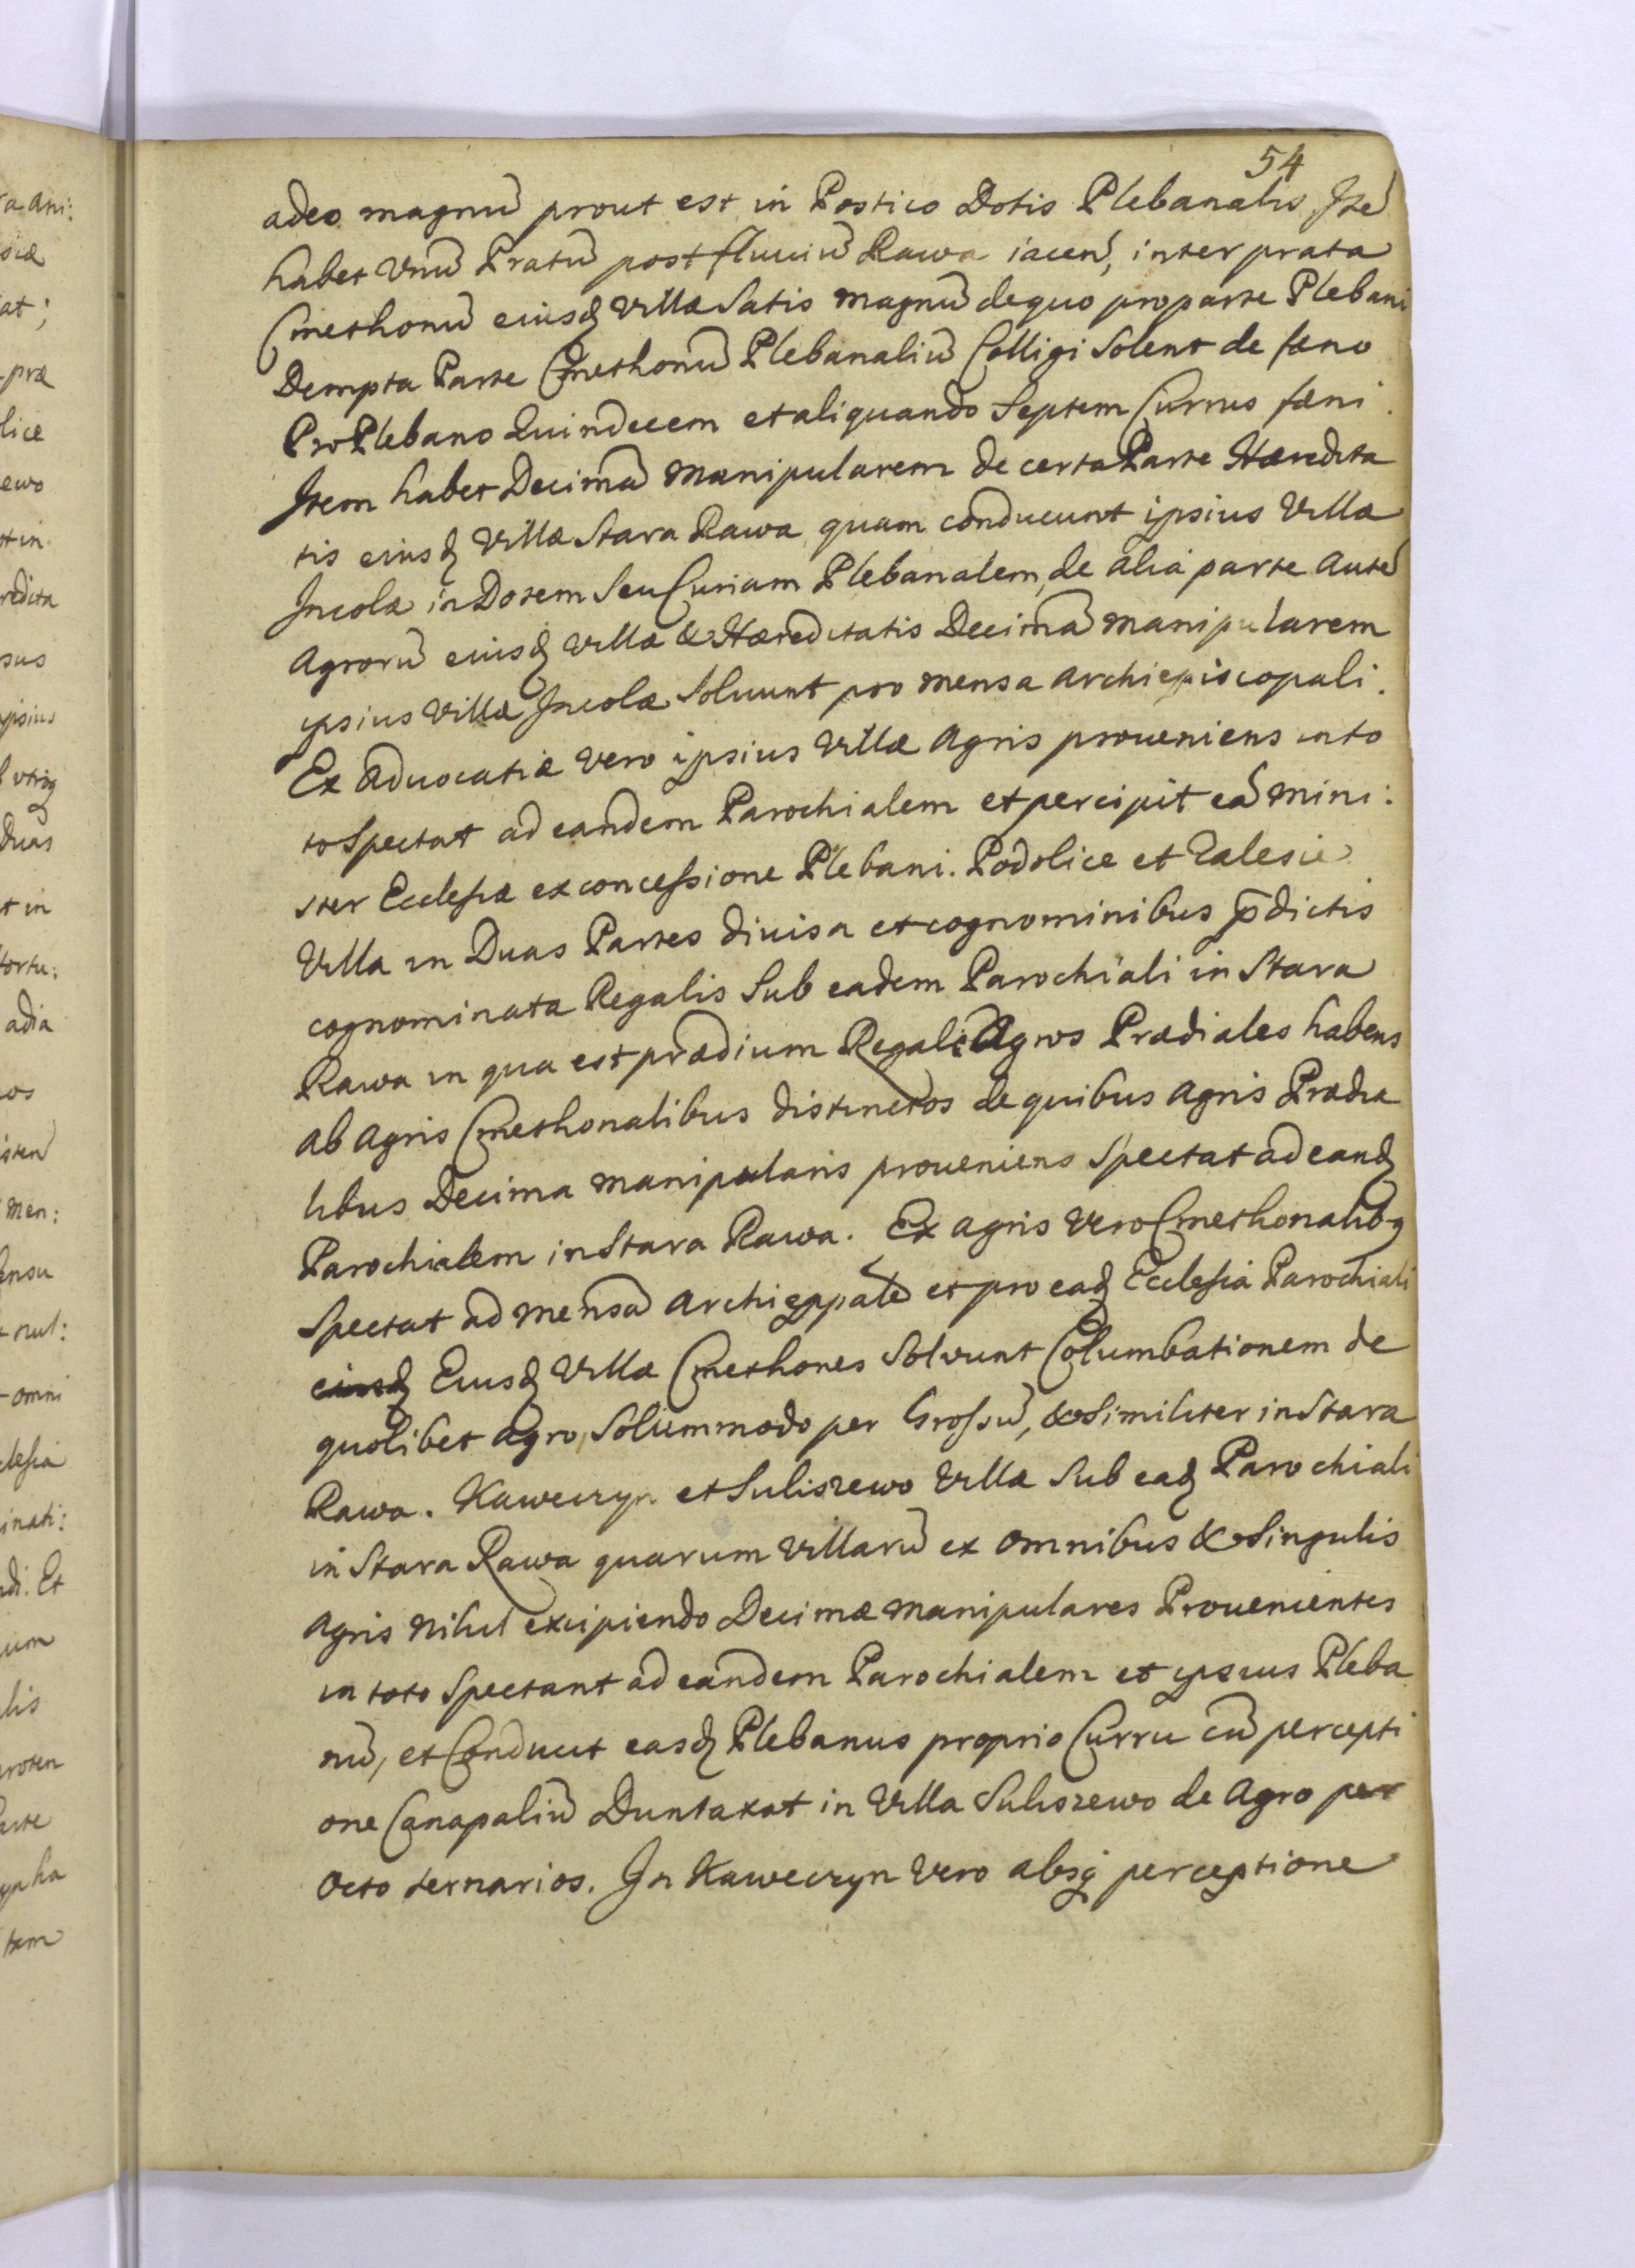 54
adeo magnũ prout est in Postico Dotis Plebanalis, Itẽ
habet Vnũ Pratũ post fluuiũ Rawa iacen̄, inter prata
Cmethonũ eiusq̃ Villæ Satis magnũ de quo pro parte Plebani
Dempta Parte Cmethonũ Plebanaliũ Colligi Solent de fæno
Pro Plebano Quindecem et aliquando Septem Currus fæni.
Item habet Decimã Manipularem de certa Parte Hæredita
tis eiusq̃ Villæ Stara Rawa quam conducunt ipsius Villæ
Incolæ in Dotem Seu Curiam Plebanalem, de alia parte autẽ
Agrorũ eiusq̃ Villæ & Hæreditatis Decimã manipularem
ipsius Villæ Incolæ Soluunt pro mensa Archiepiscopali.
Ex aduocatiæ vero ipsius Villæ Agris proueniens in to
to Spectat ad eandem Parochialem et percipit eã Mini:
ster Ecclesiæ ex concessione Plebani. Podolice et Zalesie
Villa in Duas Partes diuisa et cognominibus p̄dictis
cognominata Regalis Sub eadem Parochiali in Stara
Rawa in qua est prædium Regale Agros Prædiales habens
ab Agris Cmethonalibus distinctos de quibus Agris Prædia
libus Decima Manipularis proueniens Spectat ad eandq̃
Parochialem in Stara Rawa. Ex Agris Vero Cmethonalibq
Spectat ad Mensã Archieppalẽ et pro eadq̃ Ecclesia Parochiali
eiusq̃ Eiusq̃ Villæ Cmethones Solvunt Columbationem de
quolibet Agro, Solummodo per Grossũ, & Similiter in Stara
Rawa. Kaweczyn et Suliszewo Villæ Sub eadq̃ Parochiali
in Stara Rawa quarum Villarũ ex omnibus & Singulis
Agris Nihil excipiendo Decimæ Manipulares Prouenientes
in toto Spectant ad eandem Parochialem et ipsius Pleba
nũ, et Conducit easq̃ Plebanus proprio Curru cũ percepti
one Canapaliũ Duntaxat in Villa Suliszewo de Agro per
Octo ternarios. In Kaweczyn Vero absq̃ perceptione